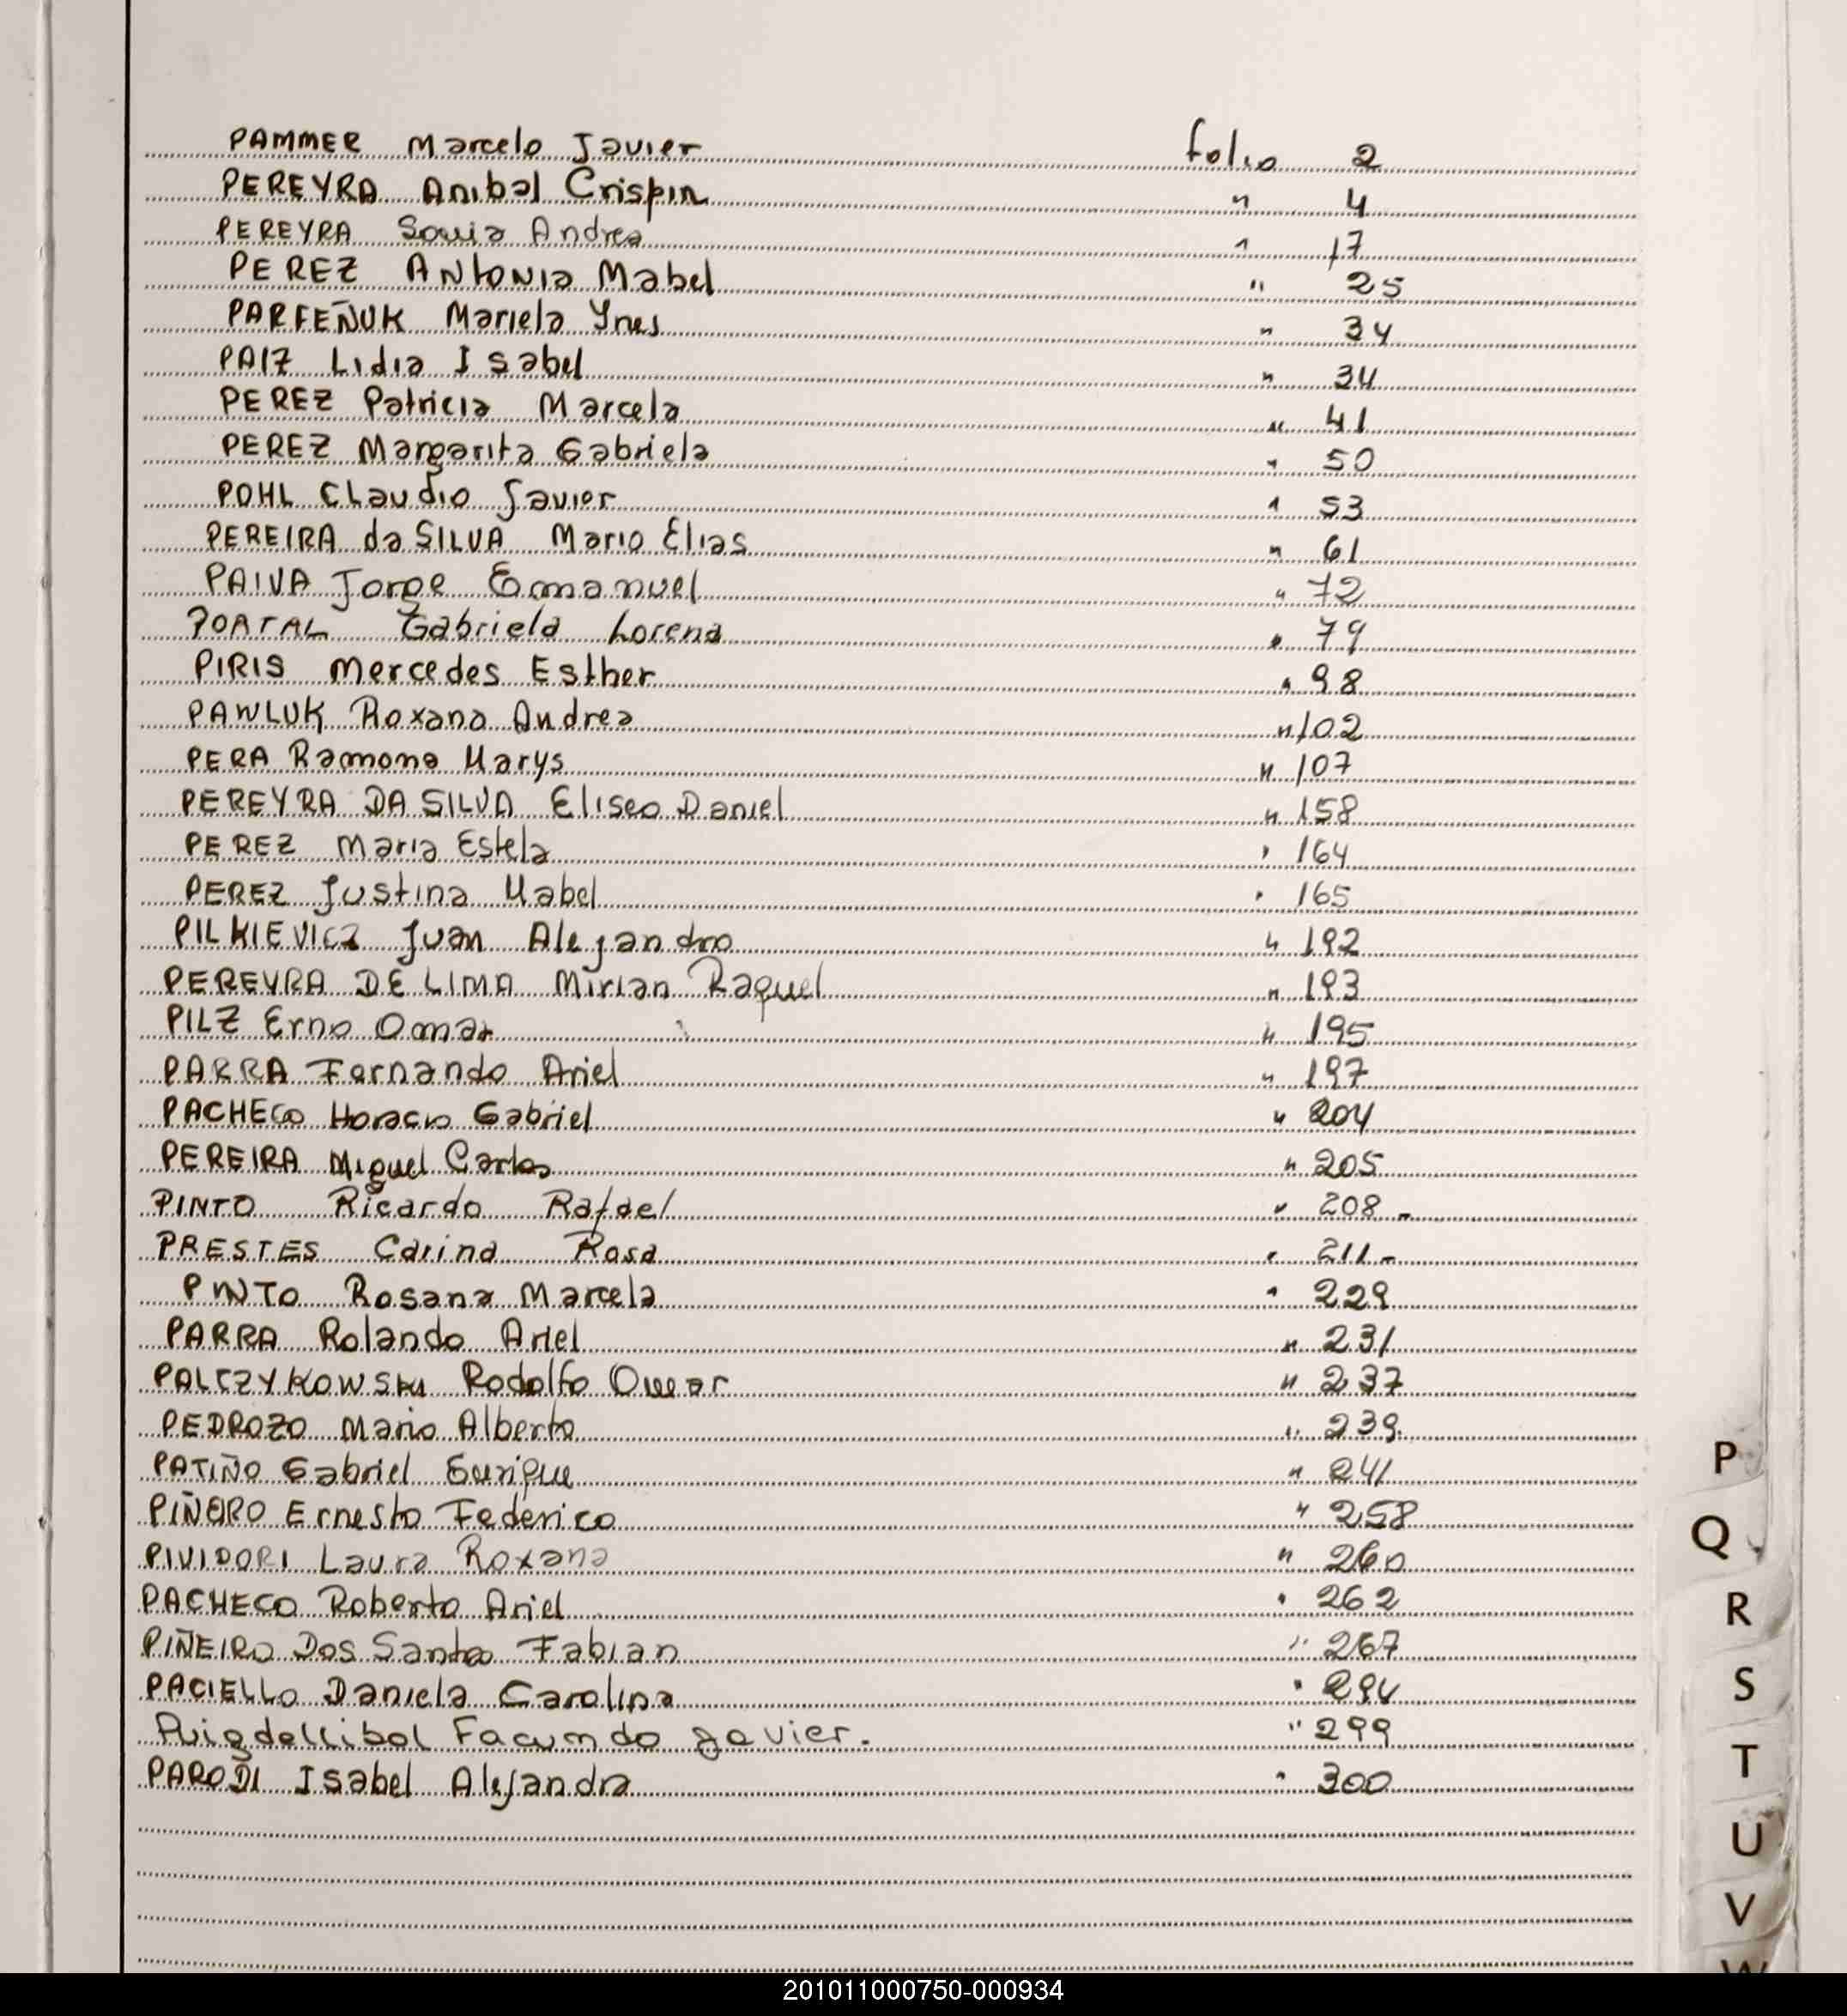 PAMMER Marcelo Javier folio 2
PEREYRA Anibal Crispin " 4
PEREYRA Sonia Andrea " 17
PEREZ Antonia Mabel " 25
PARFEÑUK Mariela Ynes " 34
PAIZ Lidia Isabel " 34
PEREZ Patricia Marcela " 41
PEREZ Margarita Gabriela " 50
POHL Claudio Javier " 53
PEREIRA da SILVA Mario Elias " 61
PAIVA Jorge Emanuel " 72
PORTAL Gabriela Lorena " 79
PIRIS Mercedes Esther " 98
PAWLUK Roxana Andrea " 102
PERA Ramona Marys " 107
PEREYRA DA SILVA Eliseo Daniel " 158
PEREZ Maria Estela " 164
PEREZ Justina Mabel " 165
PILKIEVICZ Juan Alejandro " 192
PEREYRA DE LIMA Mirian Raquel " 193
PILZ Erno Omar " 195
PARRA Fernando Ariel " 197
PACHECO Horacio Gabriel " 204
PEREIRA Miguel Carlos " 205
PINTO Ricardo Rafael " 208-
PRESTES Carina Rosa " 211-
PINTO Rosana Marcela " 229
PARRA Rolando Ariel " 231
PALCZYKOWSKI Rodolfo Omar " 237
PEDROZO Mario Alberto " 239
PATIÑO Gabriel Enrique " 241
PIÑERO Ernesto Federico " 258
PIVIDORI Laura Roxana " 260
PACHECO Roberto Ariel " 262
PIÑEIRO Dos Santos Fabian " 267
PACIELLO Daniela Carolina " 294
Puigdellibol Facundo Javier. " 299
PARODI Isabel Alejandra " 300
P
Q
R
S
T
U
V
W
201011000750-000934